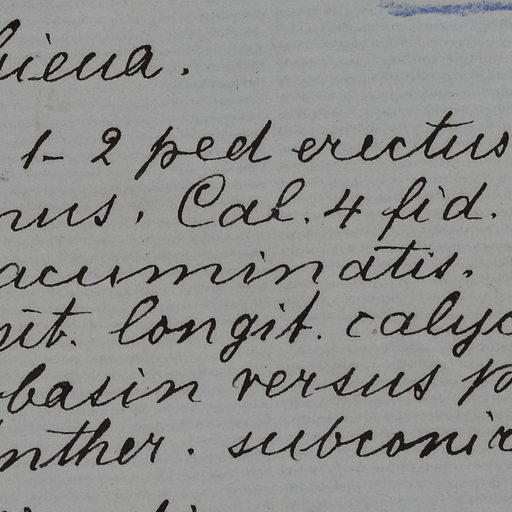 1-2 ped erectus
Cal. 4 fid.
acuminatis.
longit. calyc
basin versus p
nther. subconic